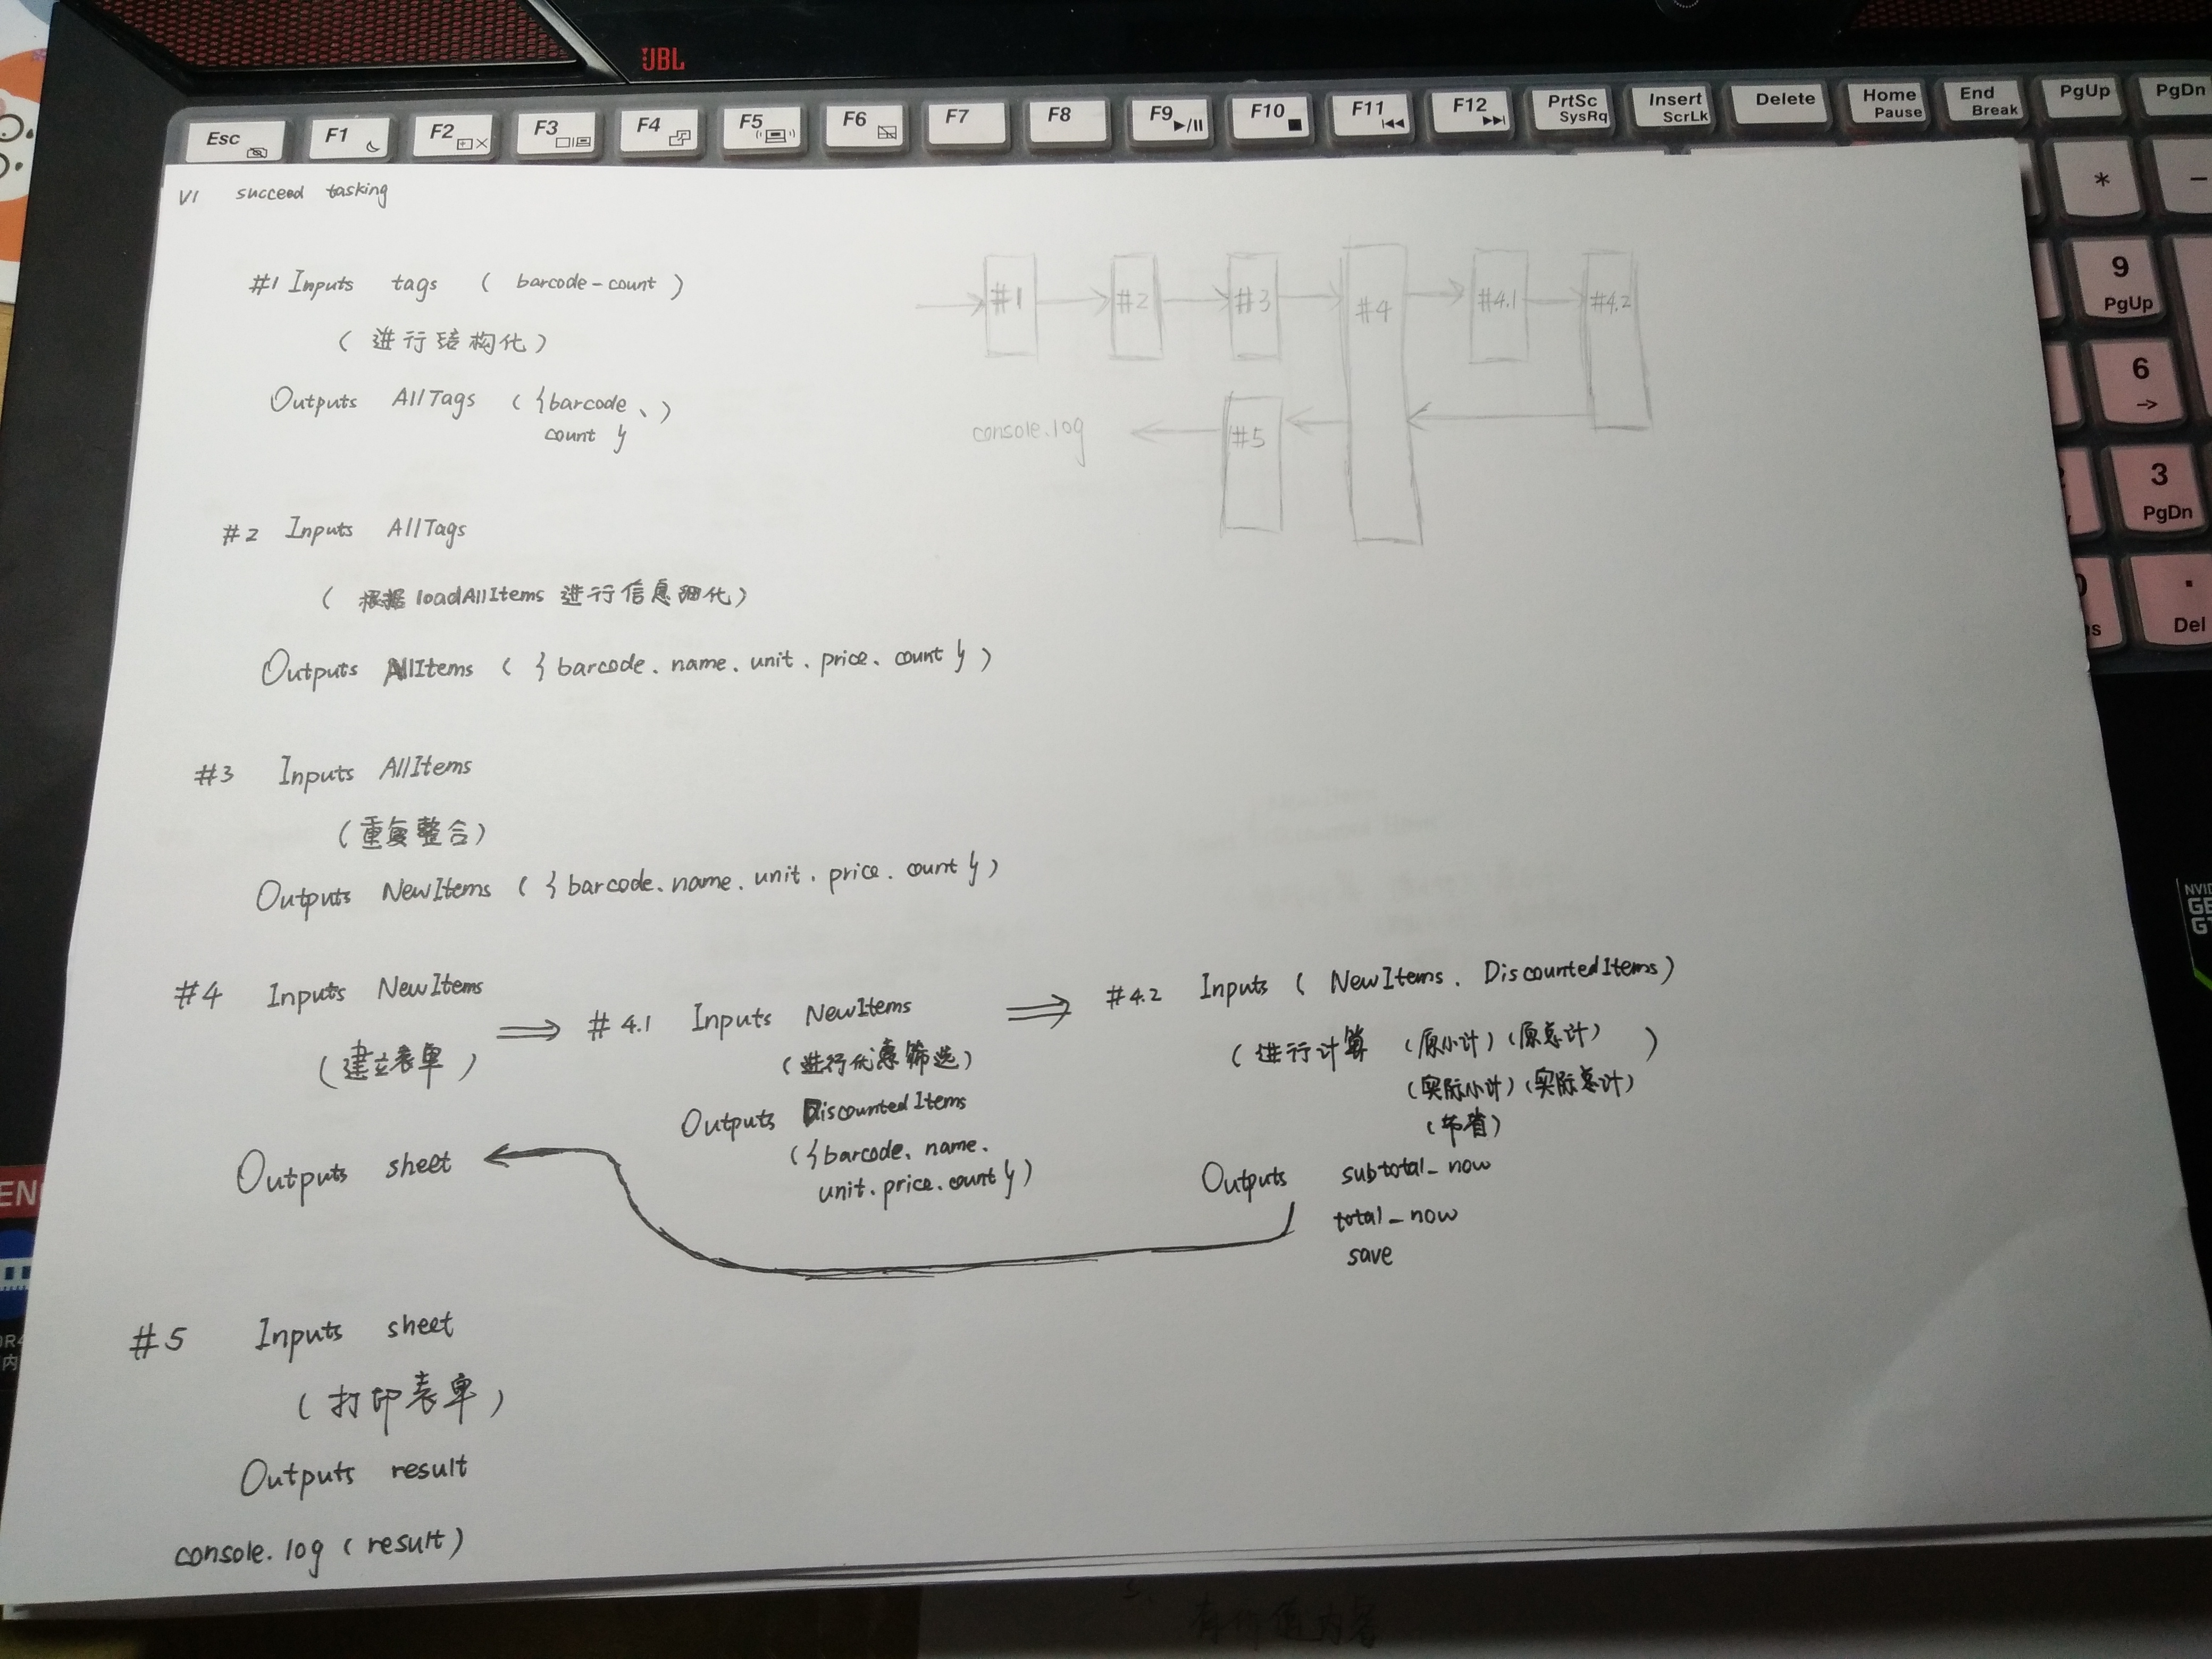 JBL
Esc F1 F2 F3 F4 F5 F6 F7 F8 F9 F10 F11 F12 PrtSc SysRq Insert ScrLk Delete Home Pause End Break PgUp PgDn
* -
9 PgUp
6
3 PgDn
. Del
V1 succeed tasking
#1 Inputs tags ( barcode-count )
( 进行结构化 )
Outputs AllTags ( {barcode、 )
count }
#1 #2 #3 #4 #4.1 #4.2
console.log #5
#2 Inputs AllTags
( 根据 loadAllItems 进行信息细化 )
Outputs AllItems ( { barcode、name、unit、price、count } )
#3 Inputs AllItems
( 重复整合 )
Outputs NewItems ( { barcode、name、unit、price、count } )
#4 Inputs NewItems
( 建立表单 )
Outputs sheet
#4.1 Inputs NewItems
( 进行优惠筛选 )
Outputs DiscountedItems
( { barcode、name、
unit、price、count } )
#4.2 Inputs ( NewItems、DiscountedItems )
( 进行计算 (原小计) (原总计) )
(实际小计) (实际总计)
(节省)
Outputs subtotal_now
total_now
save
#5 Inputs sheet
( 打印表单 )
Outputs result
console.log ( result )